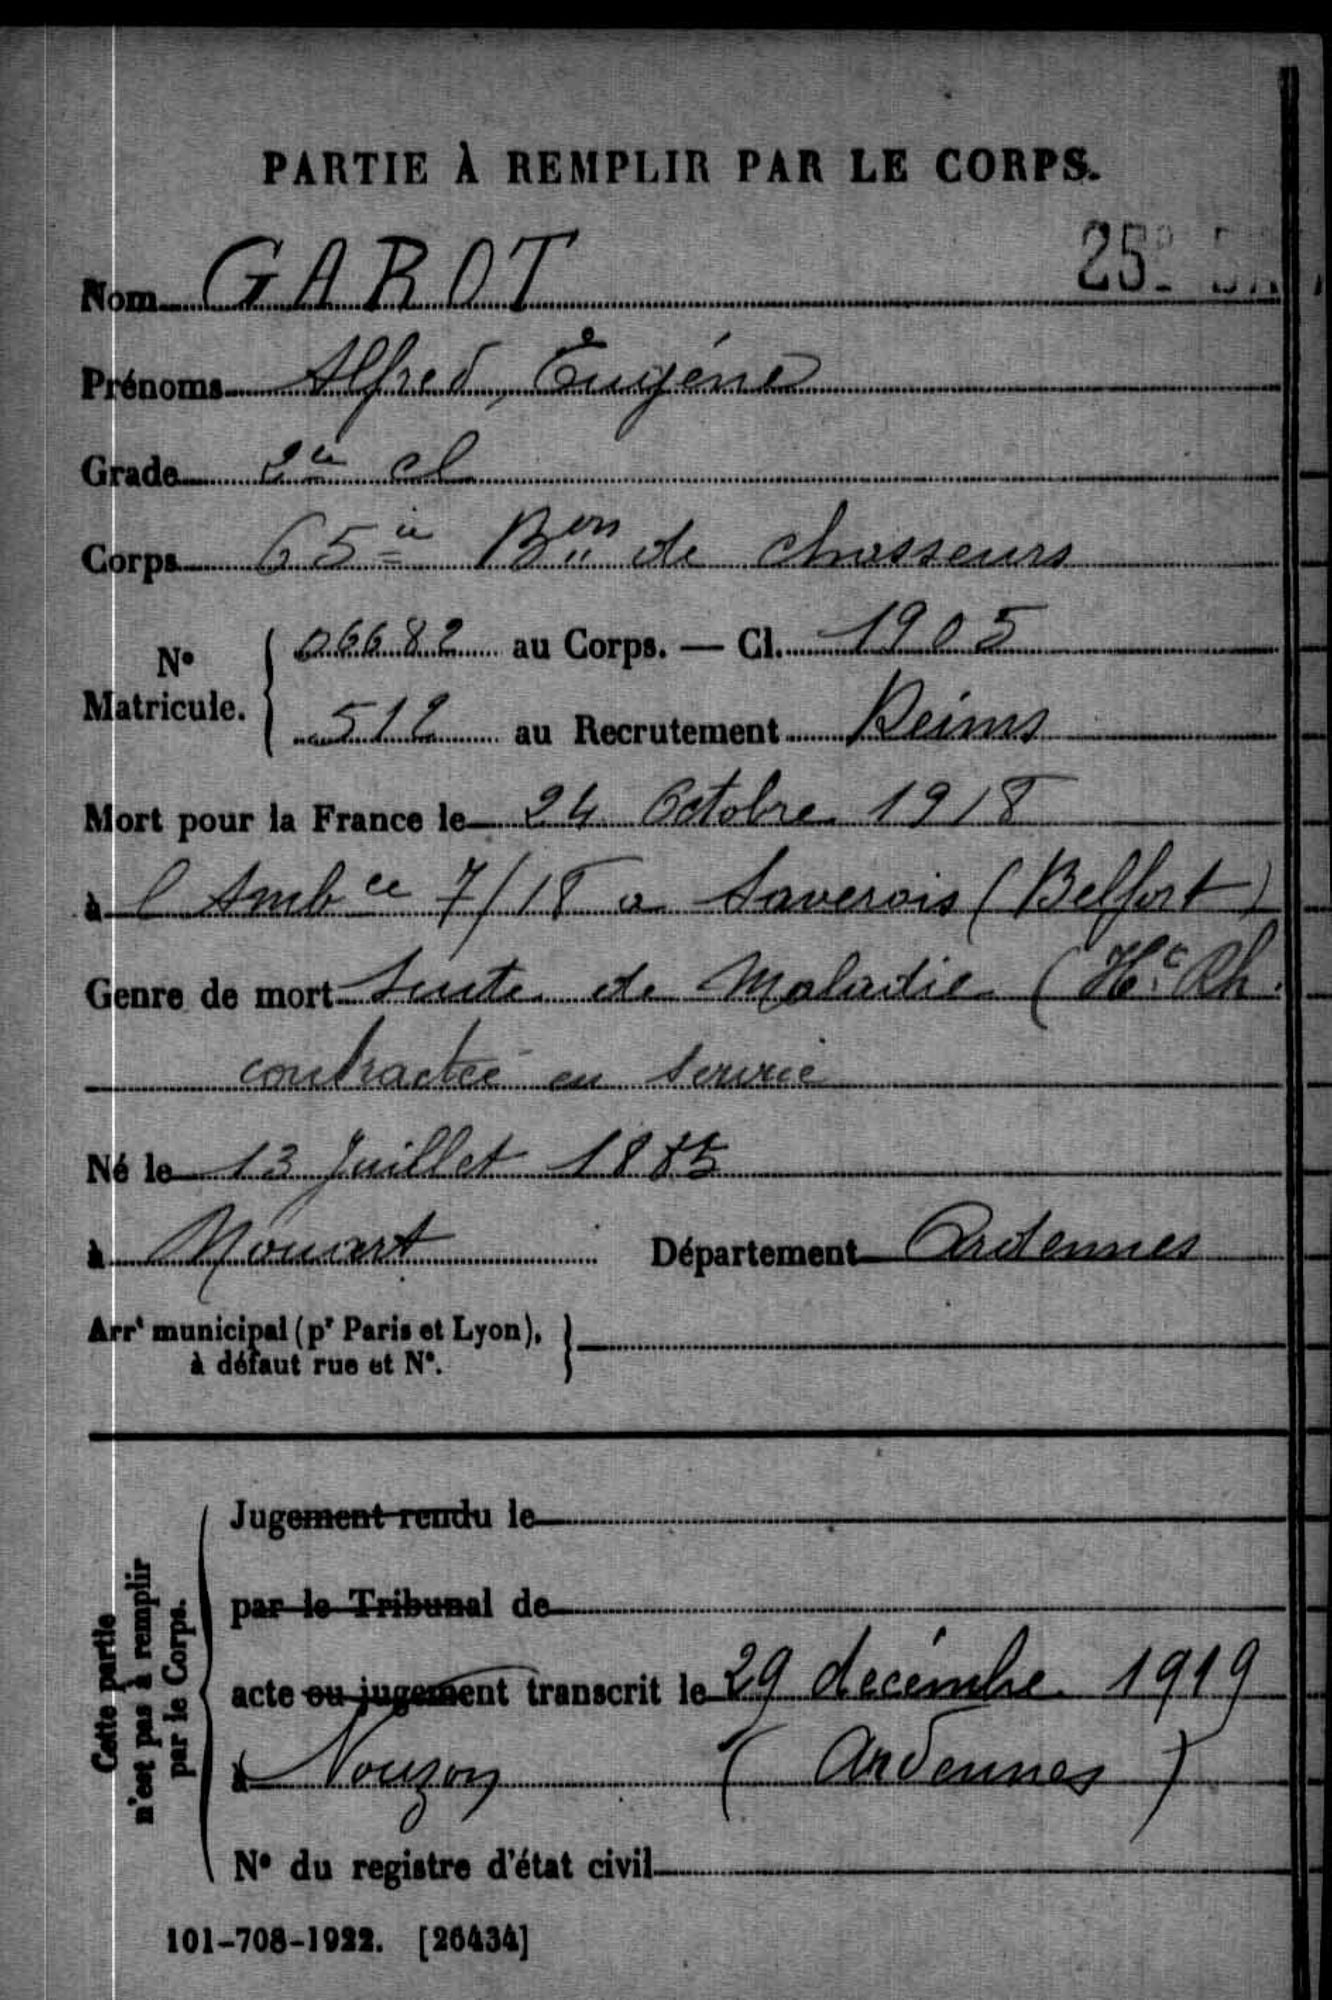 PARTIE À REMPLIR PAR LE CORPS.
25e
Nom GAROT
Prénoms Alfred, Eugène
Grade 2e cl
Corps 65e Bon de chasseurs
No Matricule. { 06682 au Corps. — Cl. 1905
512 au Recrutement Reims
Mort pour la France le 24 Octobre 1918
à l Ambce 7/18 a Saverois (Belfort)
Genre de mort Suite de Maladie (Hte Rh.
contractée en service
Né le 13 Juillet 1885
à Nouart Département Ardennes
Arrt municipal (pr Paris et Lyon), à défaut rue et No. }
Cette partie n'est pas à remplir par le Corps.
Jugement rendu le
par le Tribunal de
acte ou jugement transcrit le 29 decémbre 1919
à Nouzon (Ardennes)
No du registre d'état civil
101-708-1922. [26434]